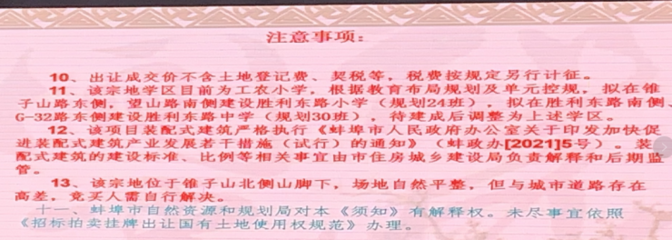 注意事项：
10、出让成交价不含土地登记费、契税等，税费按规定另行计征。
11、该宗地学区目前为工农小学，根据教育布局规划及单元控规，拟在锥
子山路东侧，望山路南侧建设胜利东路小学（规划24班），拟在胜利东路南侧
G-32路东侧建设胜利东路中学（规划30班），待建成后调整为上述学区。
12、该项目装配式建筑严格执行《蚌埠市人民政府办公室关于印发加快促
进装配式建筑产业发展若干措施（试行）的通知》（蚌政办[2021]5号）。装
配式建筑的建设标准、比例等相关事宜由市住房城乡建设局负责解释和后期监
管。
13、该宗地位于锥子山北侧山脚下，场地自然平整，但与城市道路存在
高差，竞买人需自行解决。
十一、蚌埠市自然资源和规划局对本《须知》有解释权。未尽事宜依照
《招标拍卖挂牌出让国有土地使用权规范》办理。